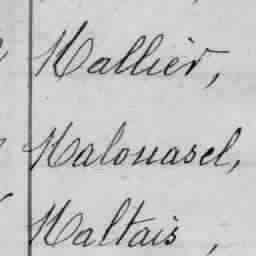 Hallier,
Halouasel,
Haltais,